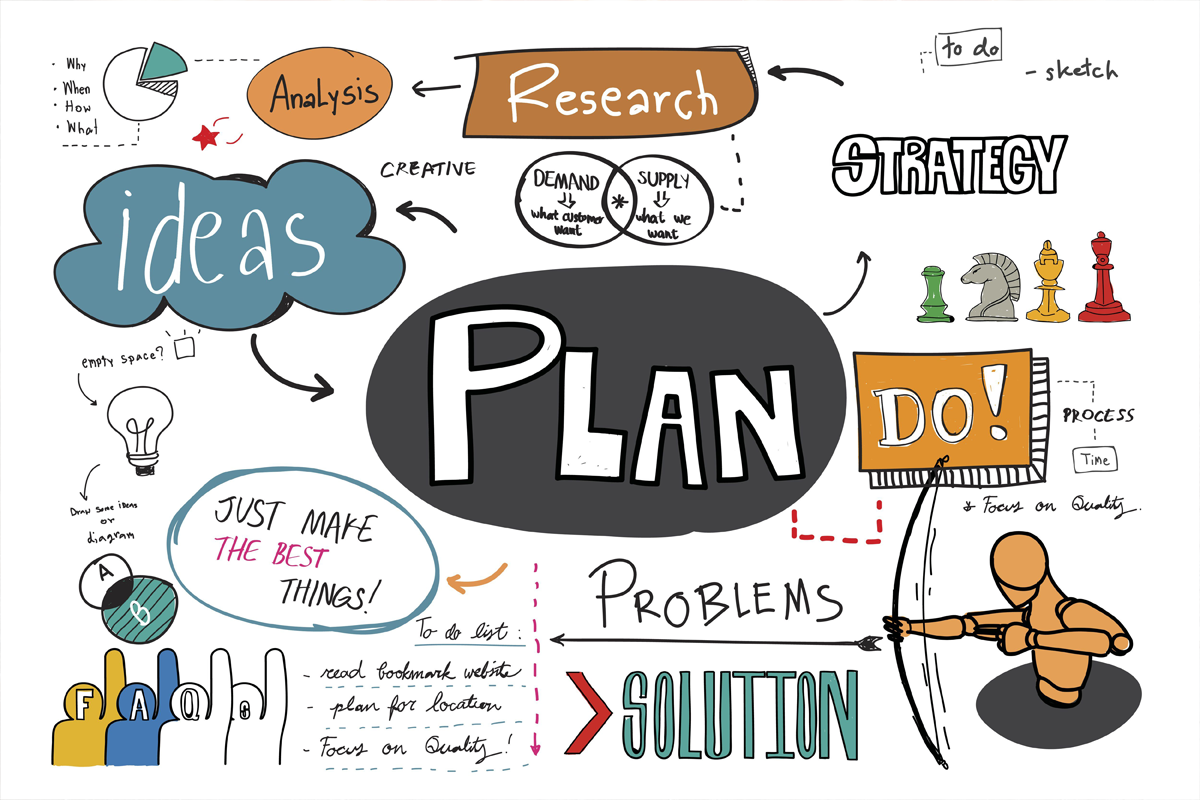 Why
When
How
What
Analysis
Research
to do
- sketch
CREATIVE
DEMAND
what customer
want
*
SUPPLY
what we
want
STRATEGY
ideas
empty space?
PLAN
DO!
PROCESS
Time
* Focus on Quality.
Draw some ideas
or
diagram
A
B
JUST MAKE
THE BEST
THINGS!
PROBLEMS
To do list :
- read bookmark website
- plan for location
- Focus on Quality!
SOLUTION
F A Q